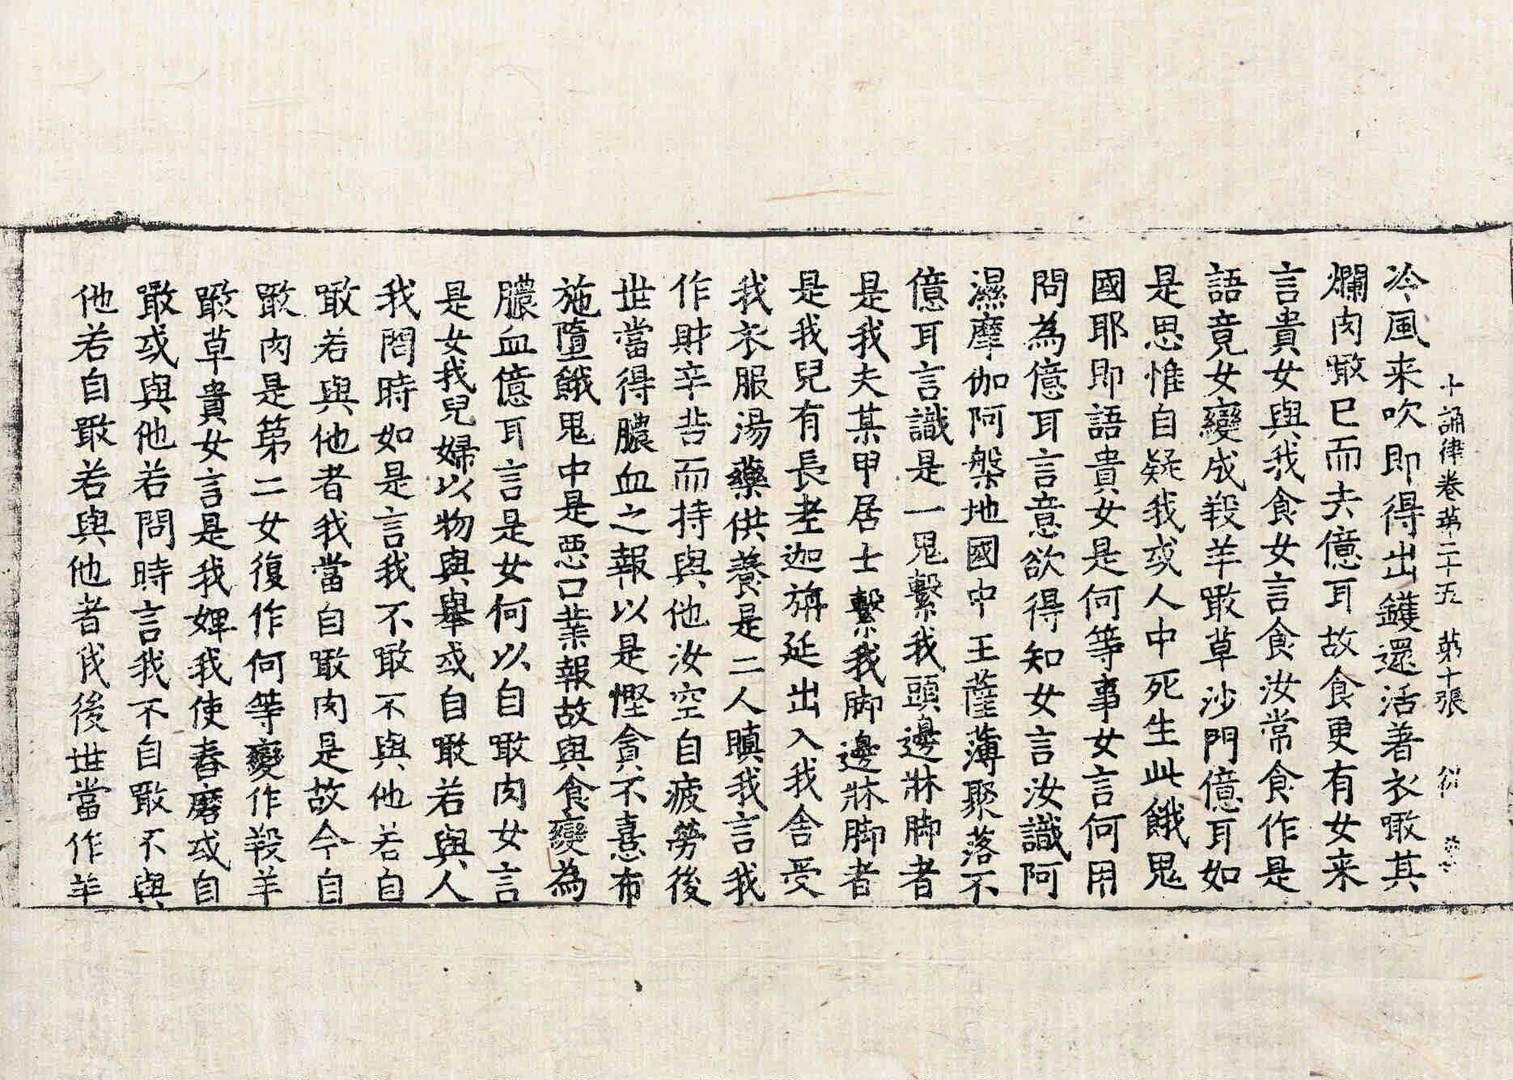 十誦律卷第二十五 第十張
冷風来吹即得出鑊還活著衣噉其
爛肉噉已而去億耳故食更有女来
言貴女與我食女言食汝常食作是
語竟女變成羖羊噉草沙門億耳如
是思惟自疑我或人中死生此餓鬼
國耶即語貴女是何等事女言何用
問為億耳言意欲得知女言汝識阿
濕摩伽阿槃地國中王薩薄聚落不
億耳言識是一鬼繫我頭邊牀脚者
是我夫某甲居士繫我脚邊牀脚者
是我兒有長老迦旃延出入我舍受
我衣服湯藥供養是二人瞋我言我
作財辛苦而持與他汝空自疲勞後
世當得膿血之報以是慳貪不憙布
施墮餓鬼中是惡口業報故與食變為
膿血億耳言是女何以自噉肉女言
是女我兒婦以物與舉或自噉若與人
我問時如是言我不噉不與他若自
噉若與他者我當自噉肉是故今自
噉肉是第二女復作何等變作羖羊
噉草貴女言是我婢我使舂磨或自
噉或與他若問時言我不自噉不與
他若自噉若與他者我後世當作羊